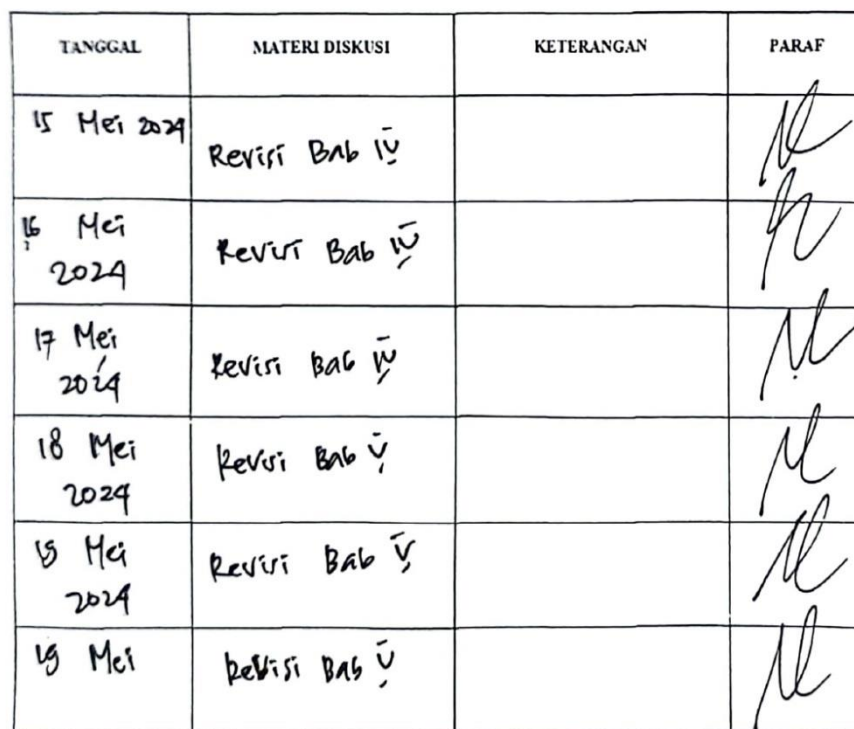 TANGGAL MATERI DISKUSI KETERANGAN PARAF
15 Mei 2024
Revisi Bab IV
16 Mei
2024
Revisi Bab IV
17 Mei
2024
Revisi Bab IV
18 Mei
2024
Revisi Bab V
19 Mei
2024
Revisi Bab V
19 Mei
Revisi Bab V